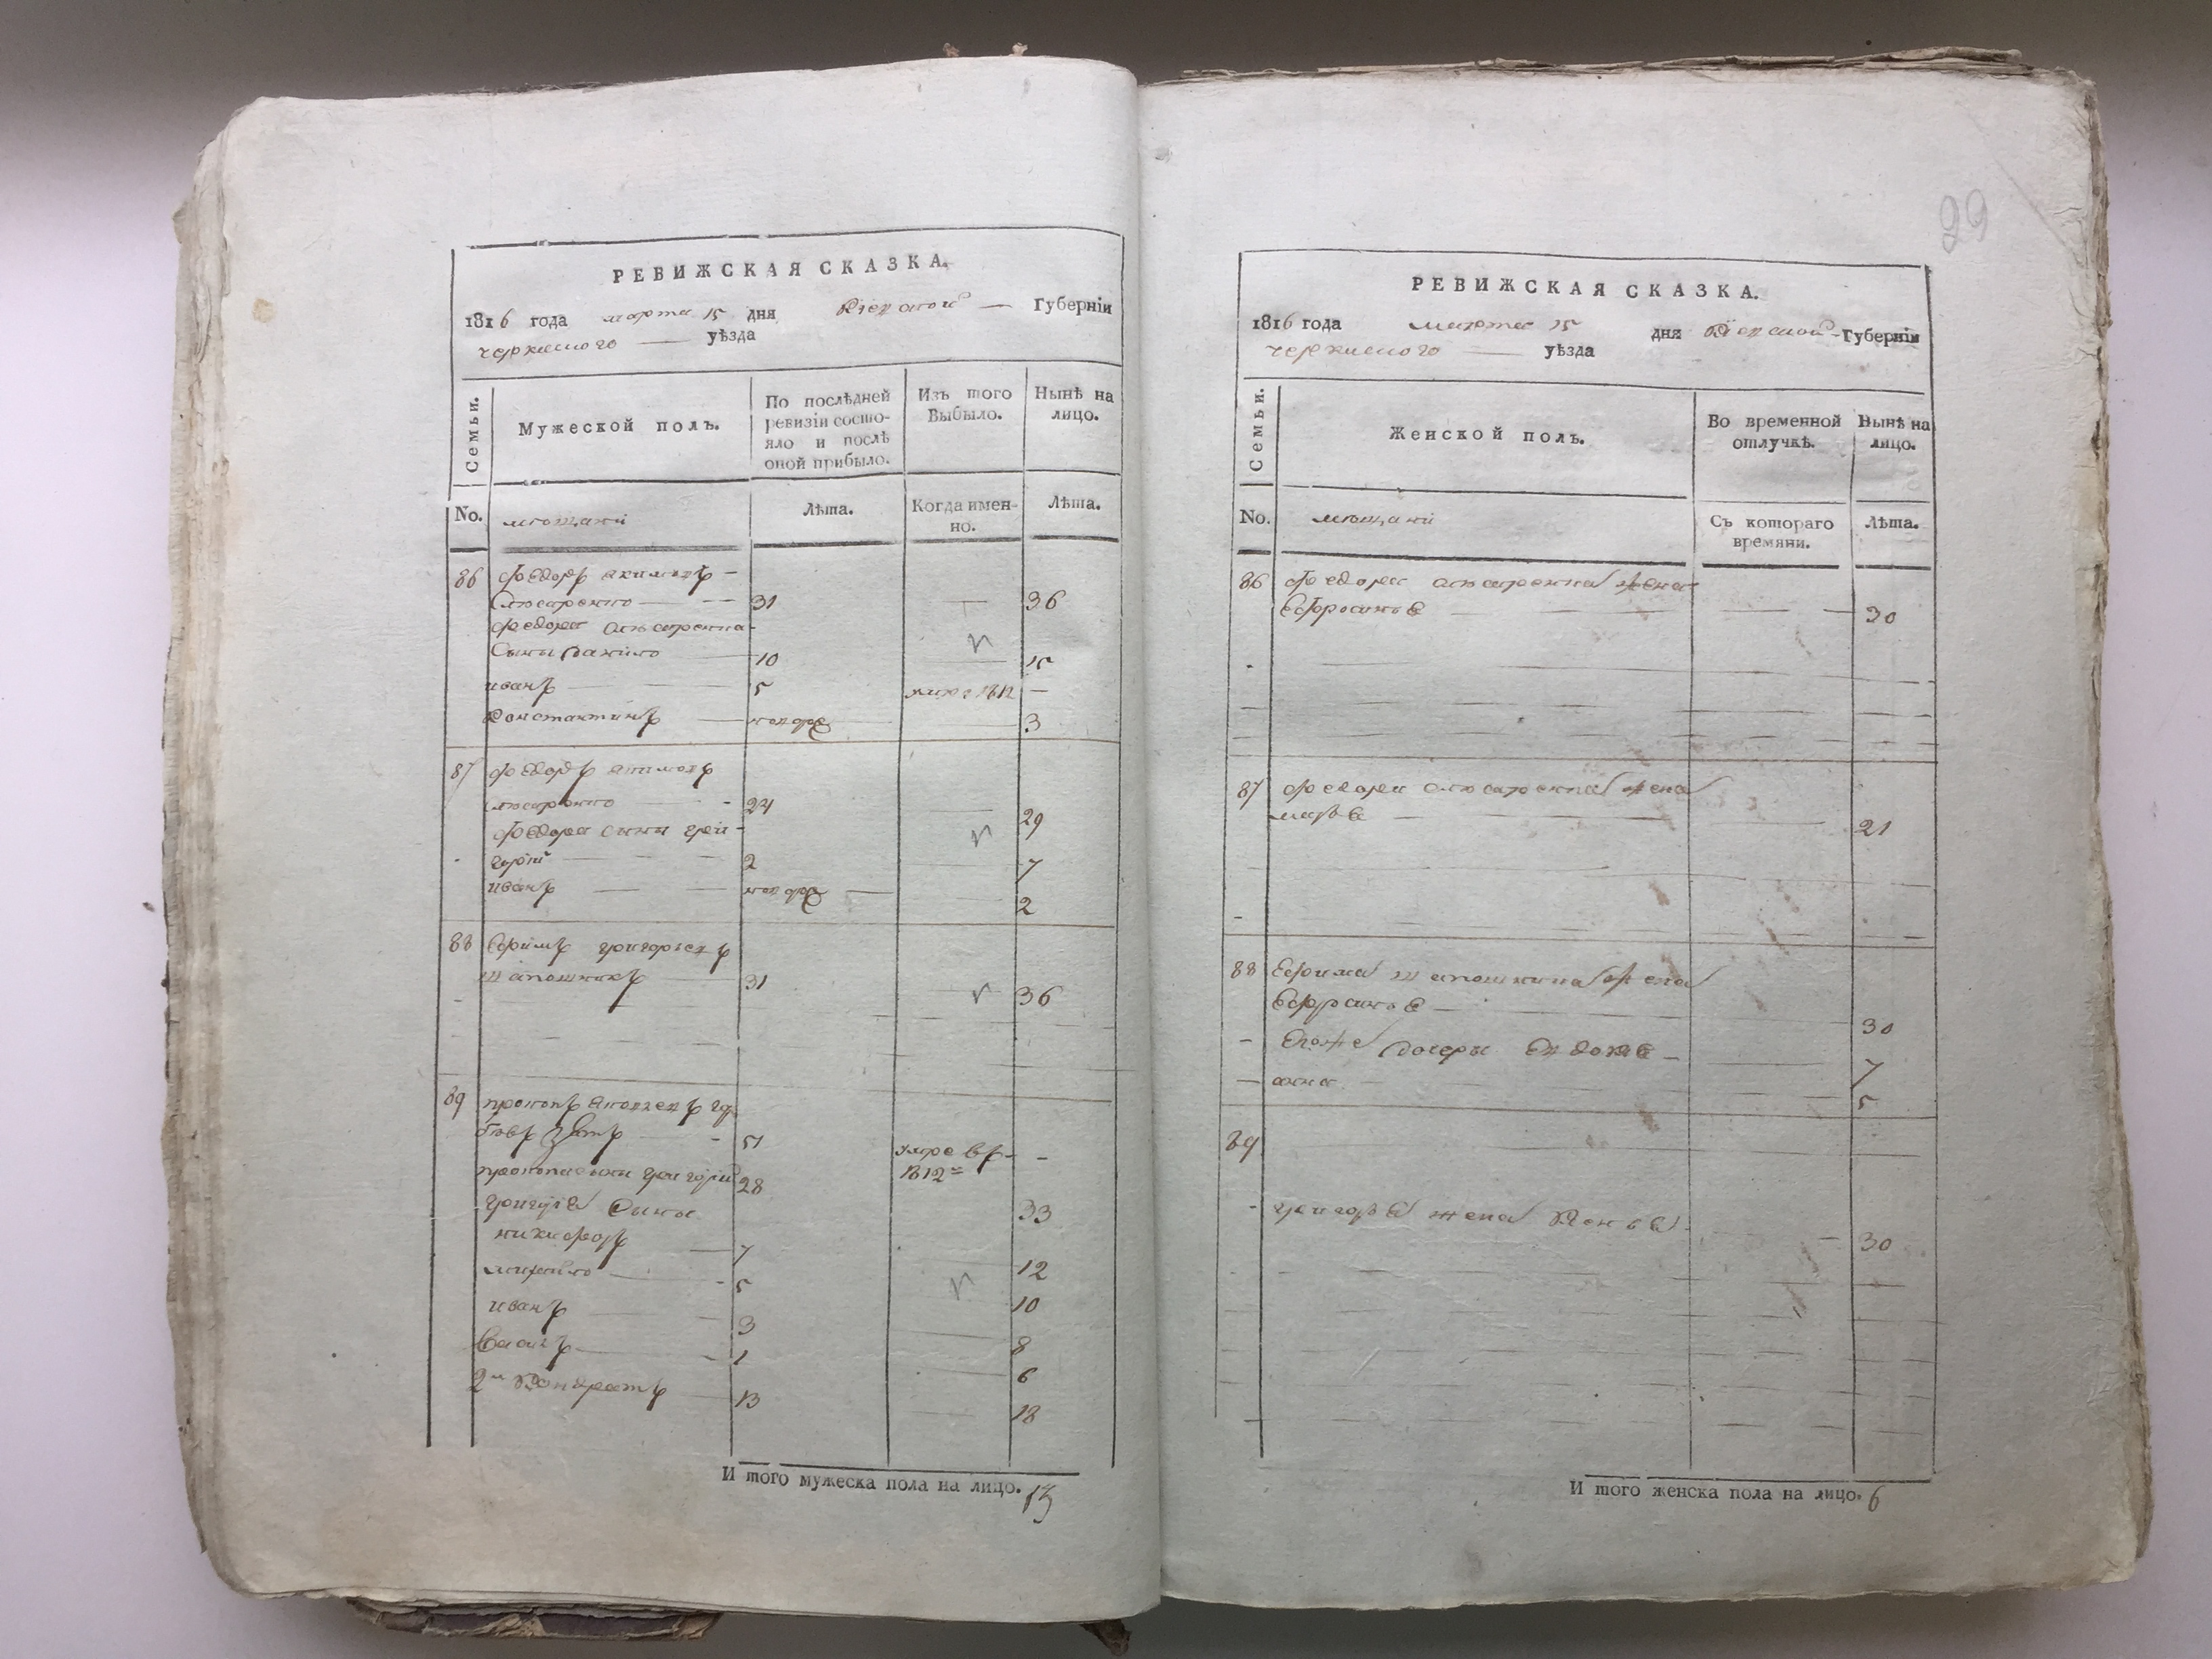 РЕВИЖСКАЯ СКАЗКА.
1816 года марта 15 дня Кіевской Губерніи
черкаского уѣзда
Семьи.
Мужеской полъ.
По послѣдней ревизіи состояло и послѣ оной прибыло.
Изъ того Выбыло.
Нынѣ на лицо.
No. мещани
Лѣта.
Когда имен-
но.
Лѣта.
86 федоръ акимовъ
слюсаренко 31 36
федора слюсаренка
сыны данило 10 15
иванъ 5 умре 1812
константинъ новорож 3
87 федоръ акимовъ
слюсаренко 24 29
федора сыны гри-
горій 2 7
иванъ новорож 2
88 Ефимъ григорьевъ
шапошникъ 31 36
89 прокопъ
зять 51 умре въ
1812
прокопа сыны григорій 28 33
григорія сыны
никифоръ 7 12
михайло 5 10
иванъ 3 8
василь 1 6
2й кондратъ 13 18
И того мужеска пола на лицо. 13
29
РЕВИЖСКАЯ СКАЗКА.
1816 года марта 15 дня Кіевской Губерніи
черкаского уѣзда
Семьи.
Женской полъ.
Во временной отлучкѣ.
Нынѣ на лицо.
No. мещани
Съ котораго времяни.
Лѣта.
86 федора слюсаренка жена
Ефросинья 30
87 федора слюсаренка жена
марья 21
88 Ефима шапошника жена
Ефросинья 30
Егоже дочери Евдокія 7
анна 5
89
григорья жена 30
И того женска пола на лицо. 6